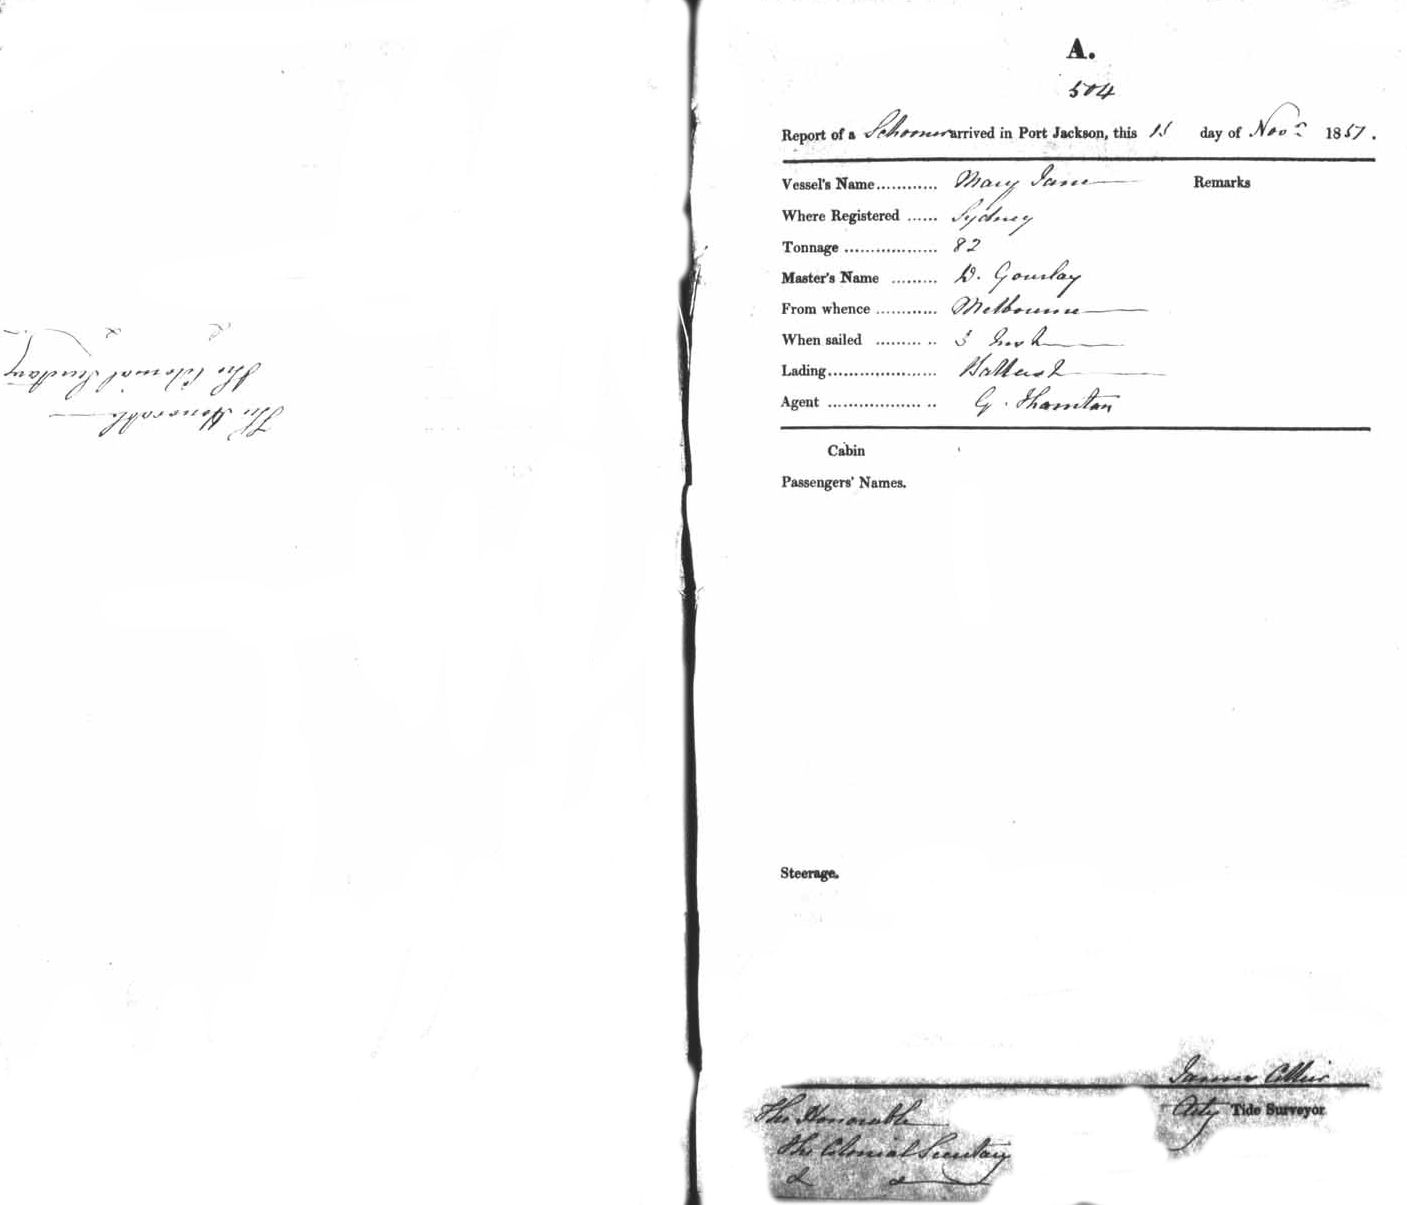 The Honorable
The Colonial Secretary
& &
A.
504
Report of a Schooner arrived in Port Jackson, this 15 day of Novr 1851.
Vessel's Name............ Mary Jane Remarks
Where Registered ...... Sydney
Tonnage .................. 82
Master's Name ......... D. Gourlay
From whence ............ Melbourne
When sailed ......... .. 3 Inst
Lading..................... Ballast
Agent ................... .. G. Thornton
Cabin
Passengers' Names.
Steerage.
James
Actg Tide Surveyor
The Honorable
The Colonial Secretary
& &